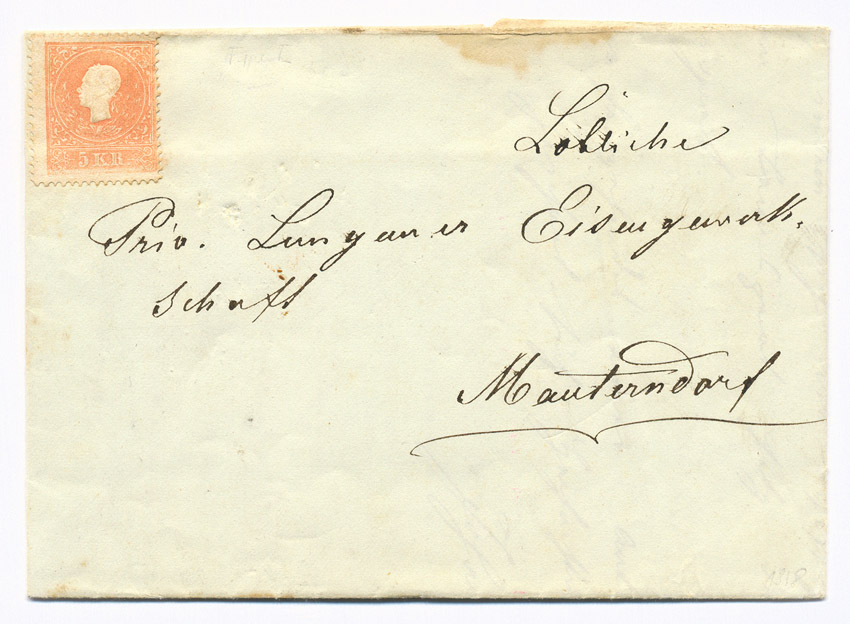 5 KR
Löbliche
Priv. Lungauer Eisengewerk-
schaft
Mauterndorf